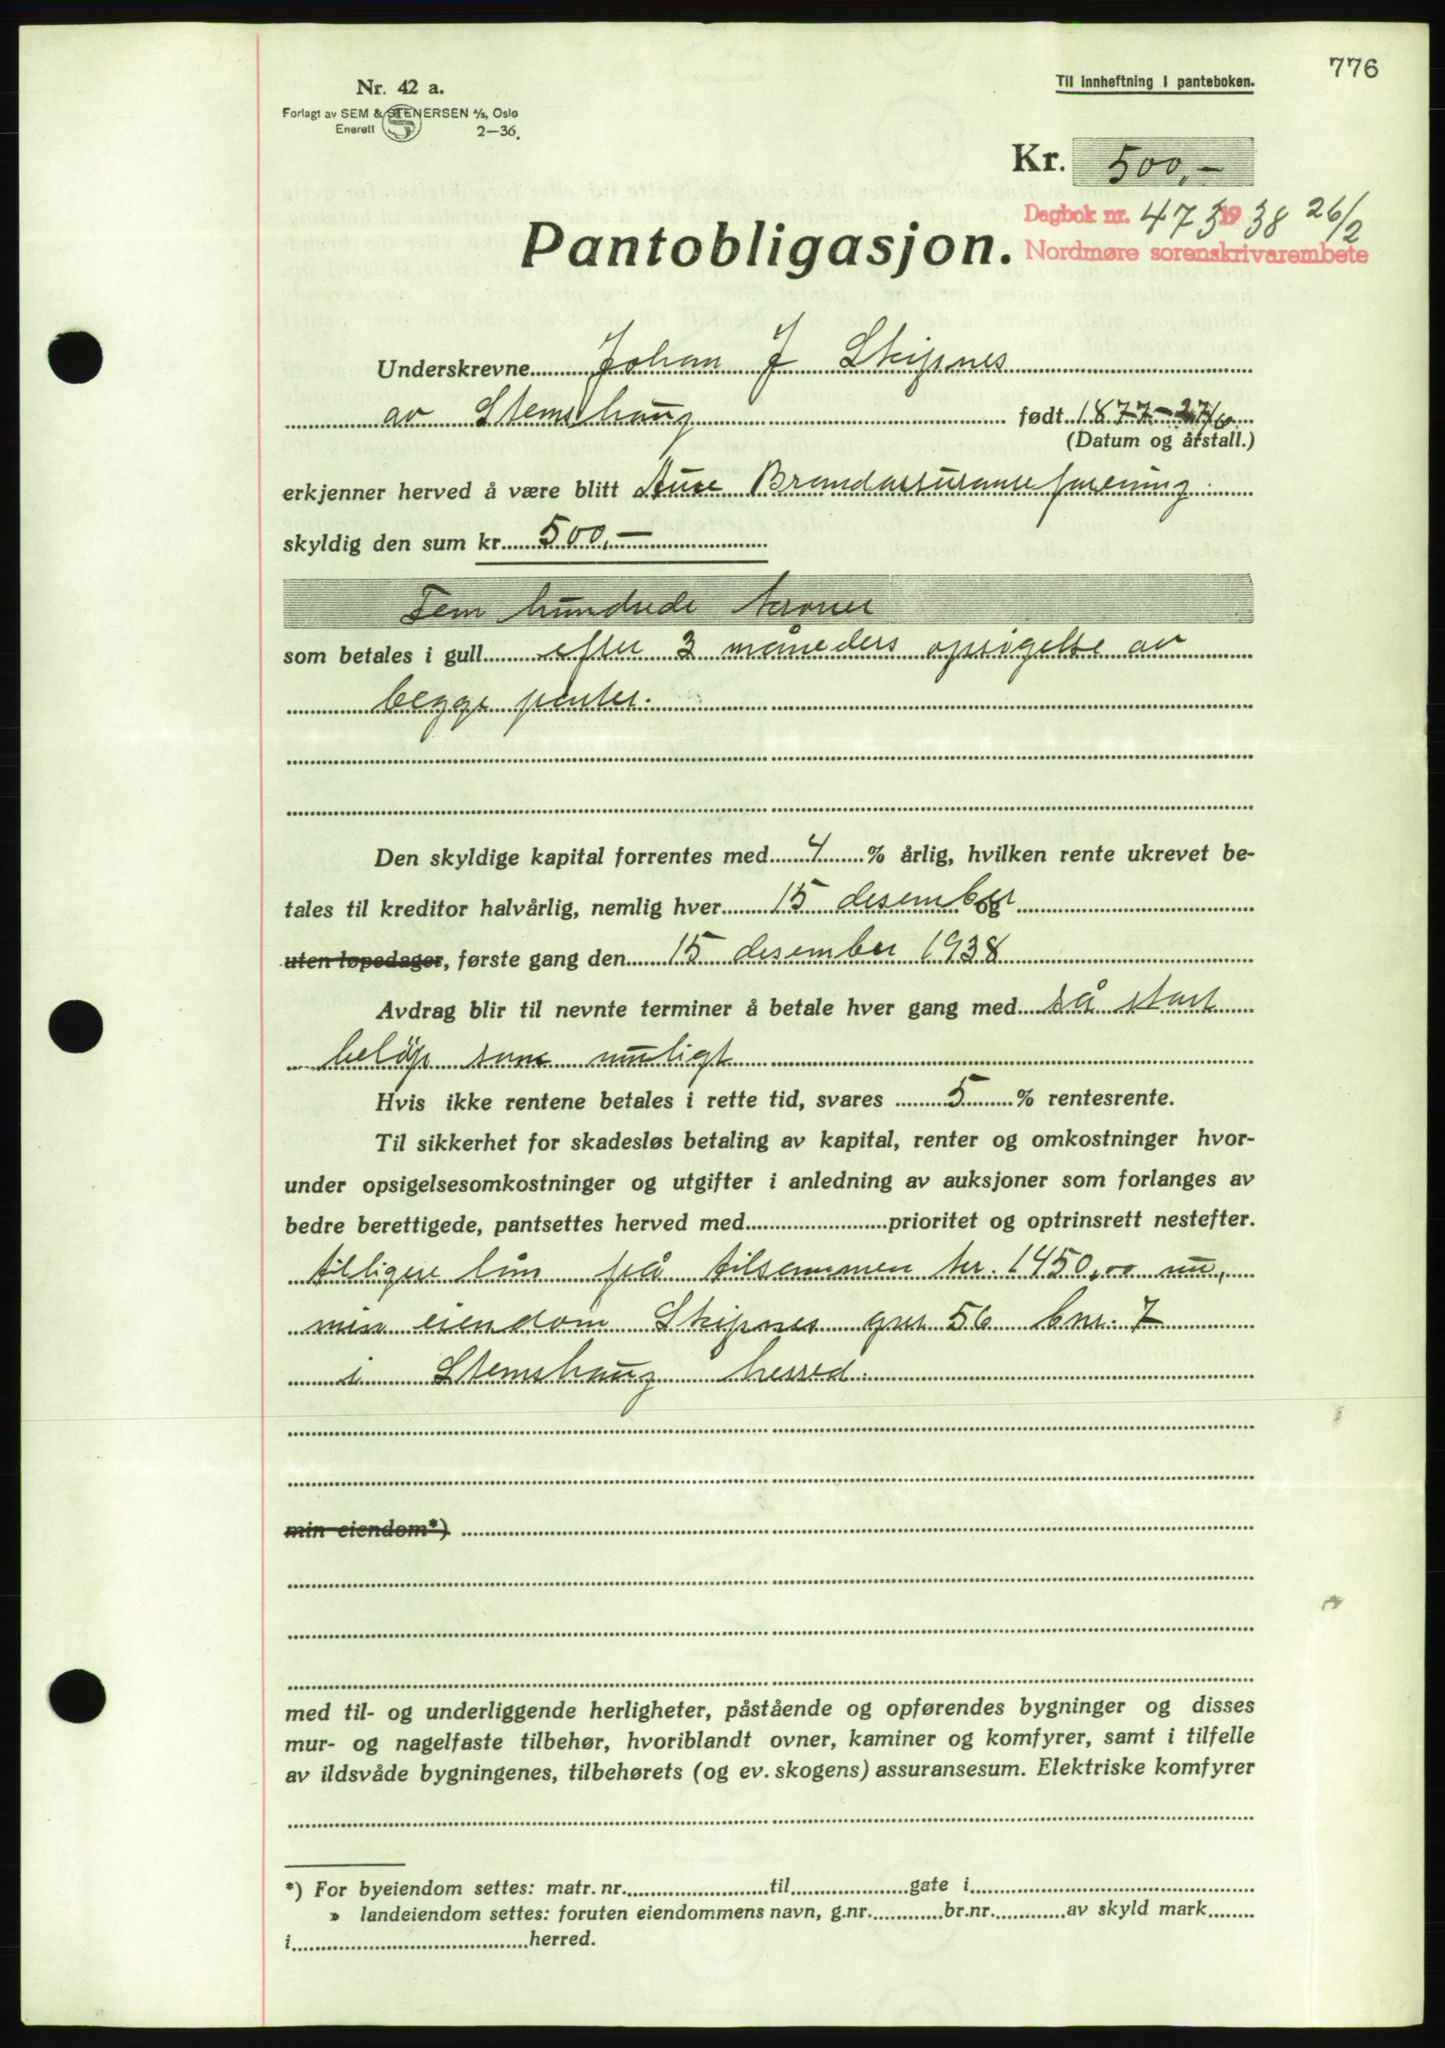 776
Nr. 42 a.
Til innheftning i panteboken.
Forlagt av SEM & STENERSEN A/S, Oslo
Enerett 2—36.
Kr. 500,-
Dagbok nr. 473 1938 26/2
Nordmøre sorenskrivarembete
Pantobligasjon.
Underskrevne Johan J Skipnes
av Stemshaug født 1877-27/6
(Datum og årstall.)
erkjenner herved å være blitt Aure Brandassuranseforening
skyldig den sum kr. 500,-
Fem hundrede kroner
som betales i gull efter 3 måneders opsigelse av
begge parter.
Den skyldige kapital forrentes med 4 % årlig, hvilken rente ukrevet be-
tales til kreditor halvårlig, nemlig hver 15 desember og
uten løpedager, første gang den 15 desember 1938
Avdrag blir til nevnte terminer å betale hver gang med så stort
beløp som muligt
Hvis ikke rentene betales i rette tid, svares 5 % rentesrente.
Til sikkerhet for skadesløs betaling av kapital, renter og omkostninger hvor-
under opsigelsesomkostninger og utgifter i anledning av auksjoner som forlanges av
bedre berettigede, pantsettes herved med prioritet og optrinsrett nestefter.
tilligere lån på tilsammen kr. 1450,00
min eiendom Skipnes gnr 56 bnr. 7
i Stemshaug herred.
min eiendom*)
med til- og underliggende herligheter, påstående og opførendes bygninger og disses
mur- og nagelfaste tilbehør, hvoriblandt ovner, kaminer og komfyrer, samt i tilfelle
av ildsvåde bygningenes, tilbehørets (og ev. skogens) assuransesum. Elektriske komfyrer
*) For byeiendom settes: matr. nr. til gate i
» landeiendom settes: foruten eiendommens navn, g.nr. br.nr. av skyld mark
i herred.